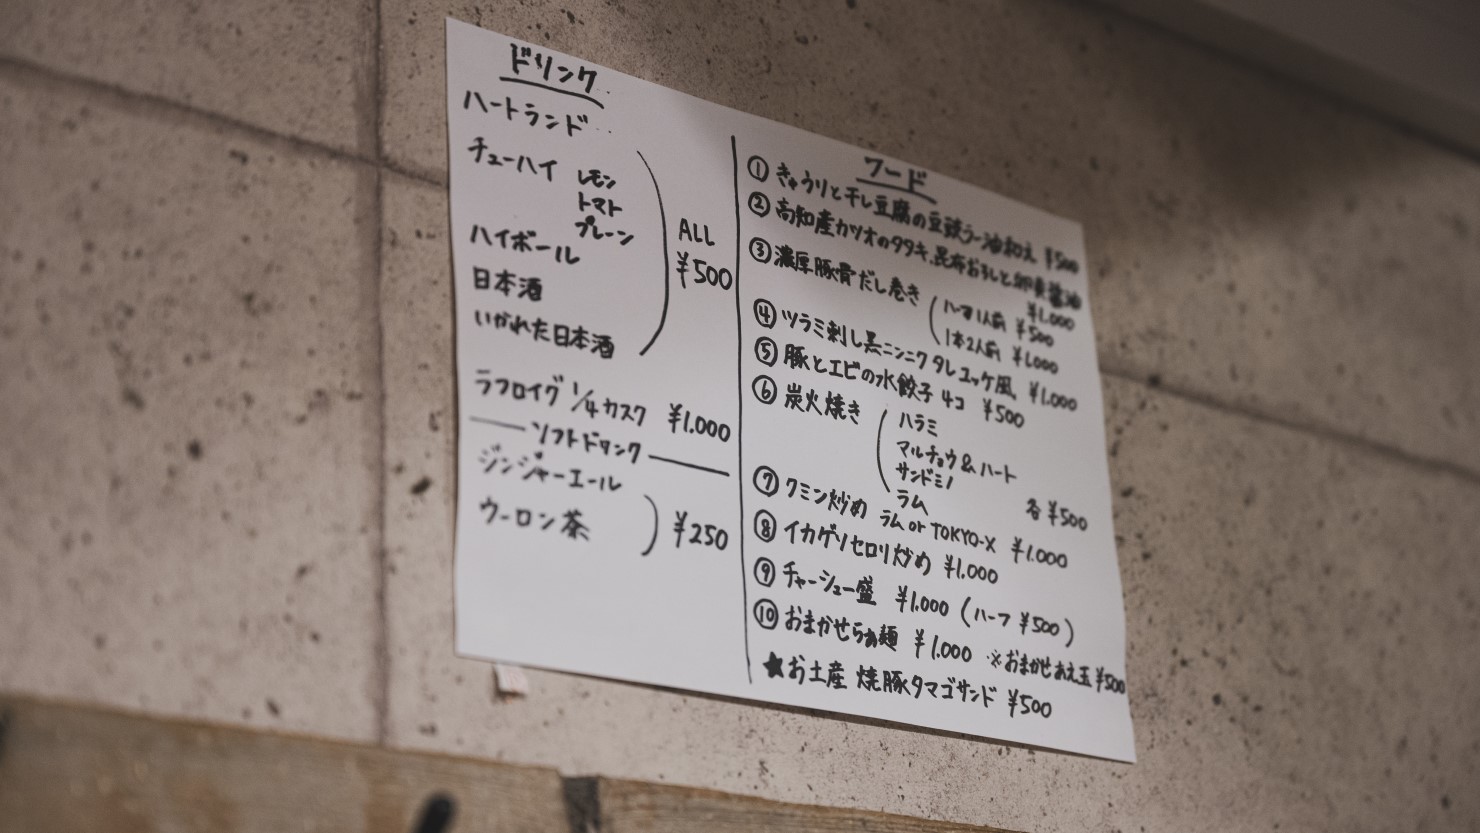 ドリンク
ハートランド
チューハイ レモン
トマト
プレーン
ハイボール
日本酒
いかれた日本酒
ALL
¥500
ラフロイグ 1/4カスク ¥1.000
ソフトドリンク
ジンジャーエール
ウーロン茶
¥250
フード
① きゅうりと干し豆腐の豆豉ラー油和え ¥500
② 高知産カツオのタタキ、昆布おろしと卵黄醤油
¥1.000
③ 濃厚豚骨だし巻き
ハーフ1人前 ¥500
1本2人前 ¥1.000
④ ツラミ刺し黒ニンニクタレユッケ風 ¥1.000
⑤ 豚とエビの水餃子 4コ ¥500
⑥ 炭火焼き
ハラミ
マルチョウ&ハート
サンドミノ
ラム
各¥500
⑦ クミン炒め ラム or TOKYO-X ¥1.000
⑧ イカゲソセロリ炒め ¥1.000
⑨ チャーシュー盛 ¥1.000 (ハーフ ¥500)
⑩ おまかせらぁ麺 ¥1.000 ※おまかせあえ玉¥500
★お土産 焼豚タマゴサンド ¥500